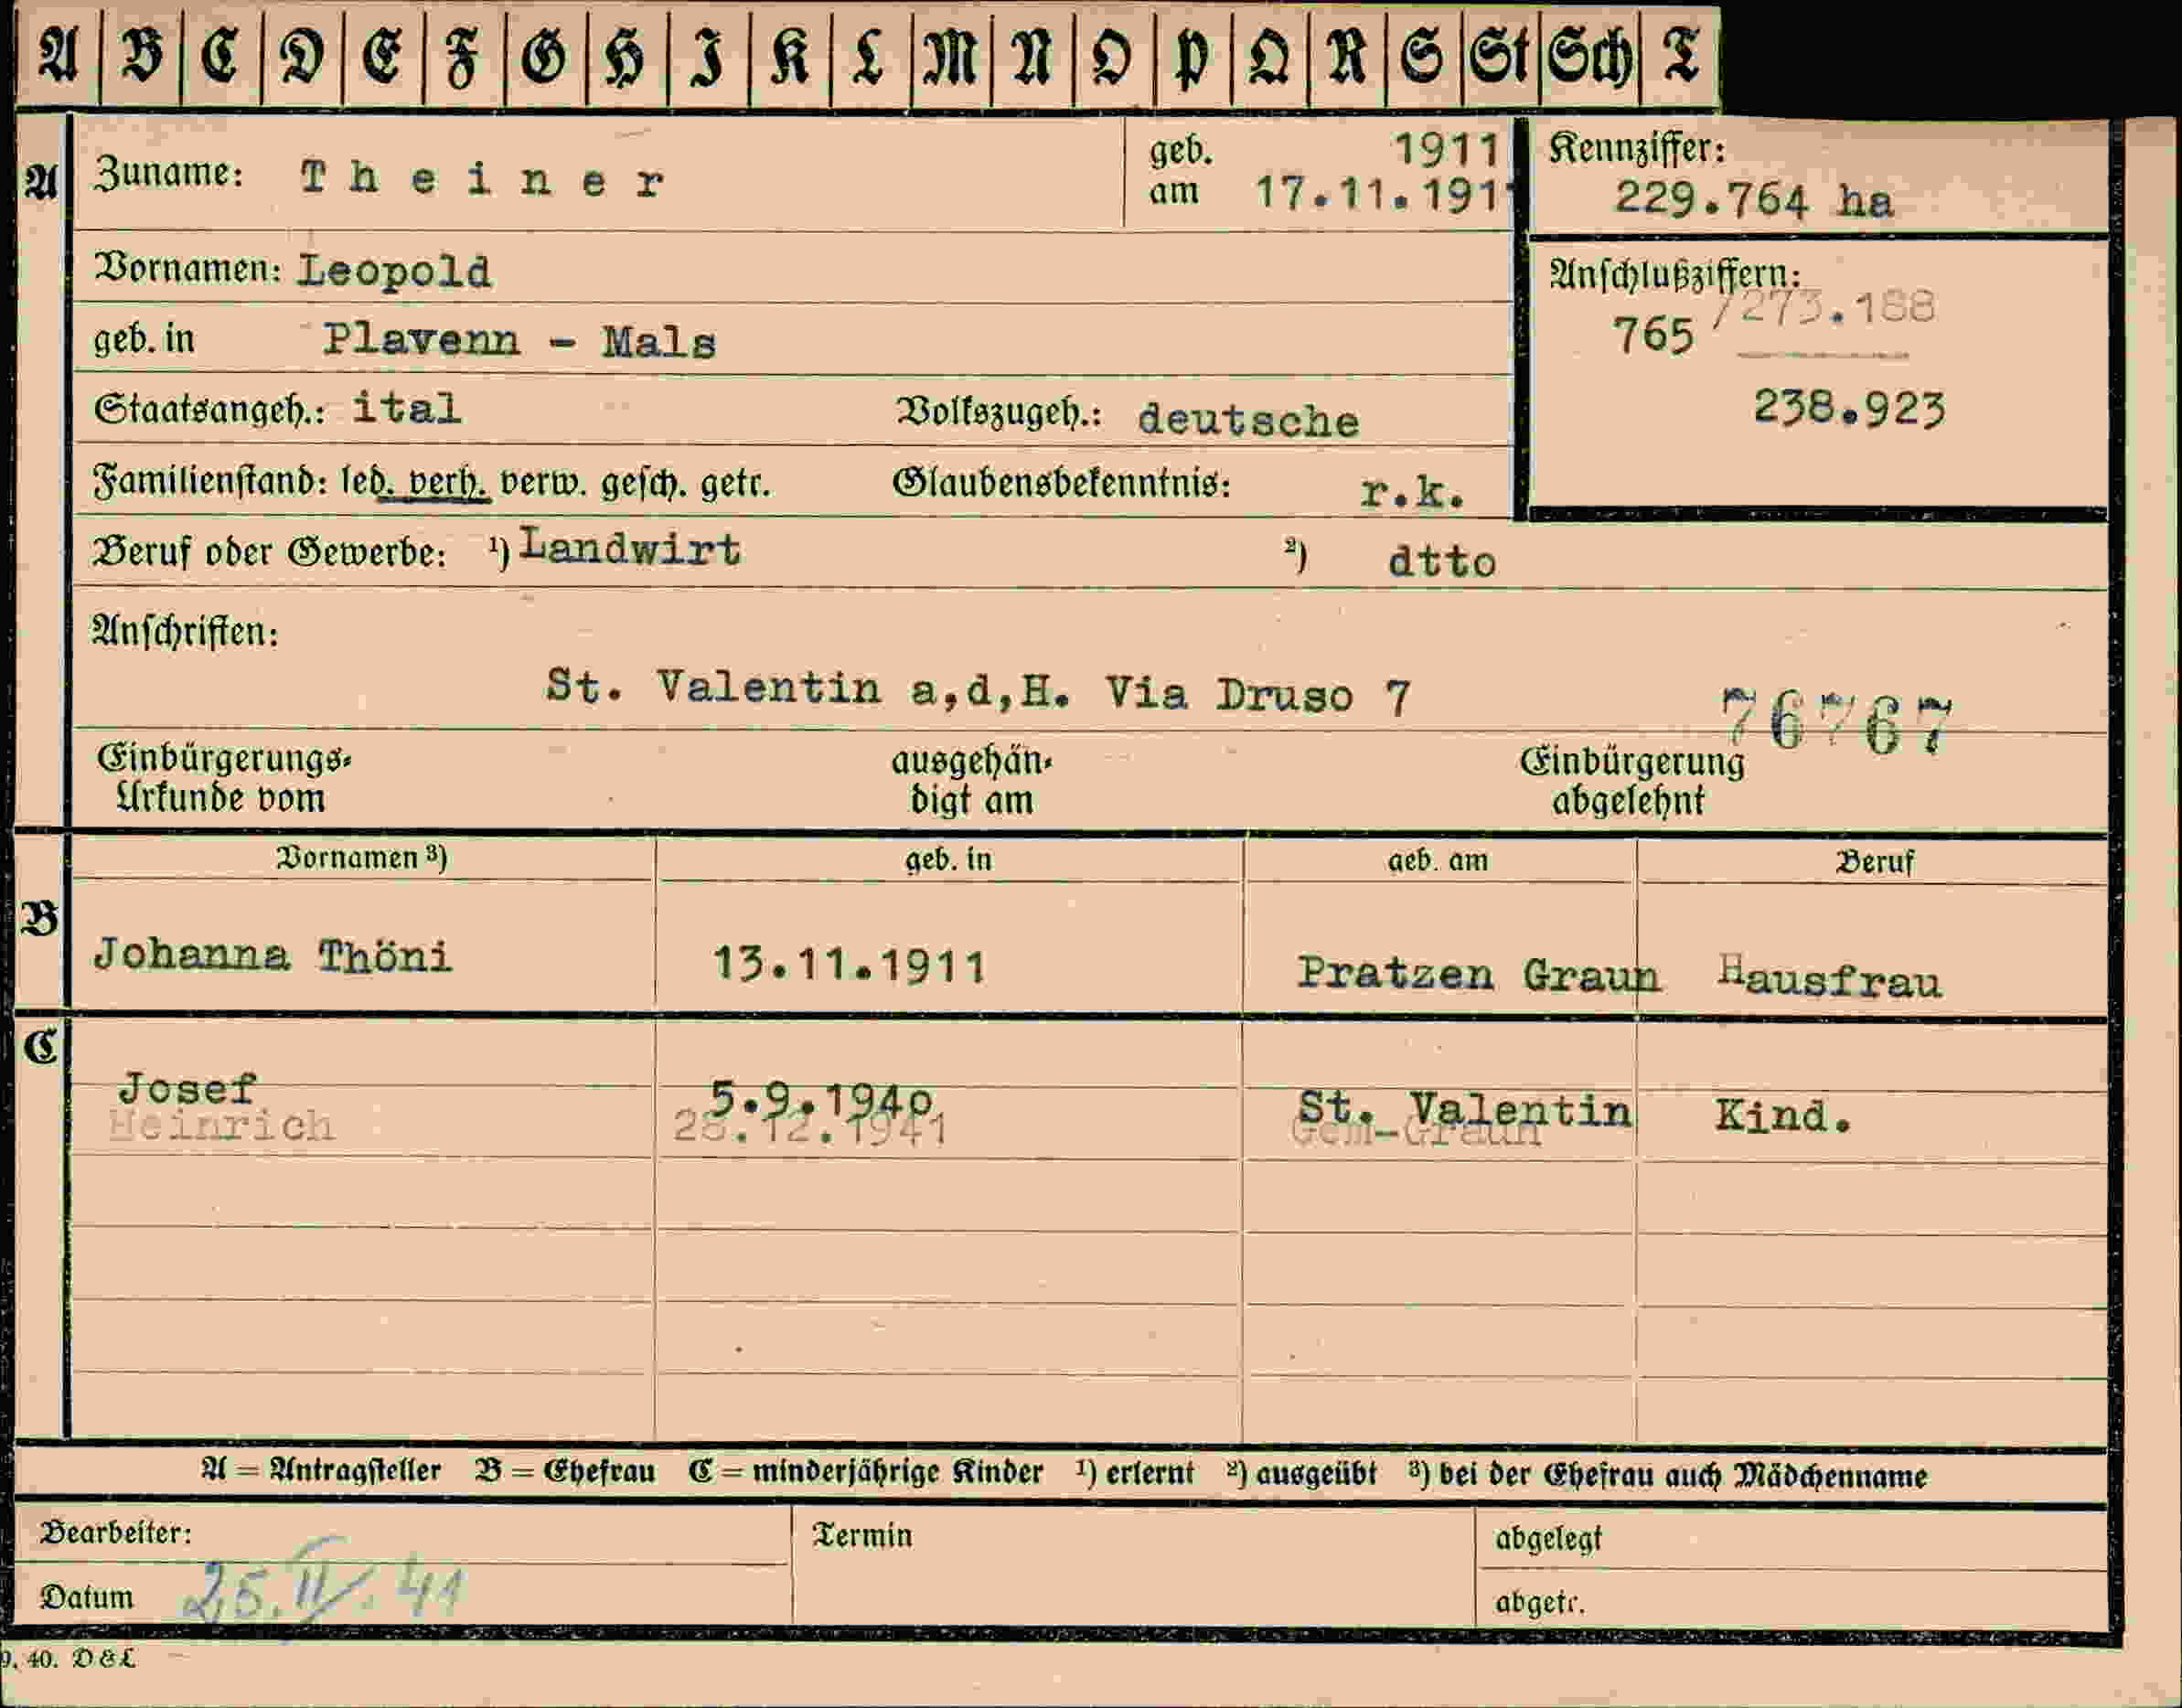 A B C D E F G H I K L M N O P Q R S St Sch T
A
Zuname: Theiner
geb. 1911
am 17.11.1911
Kennziffer:
229.764 ha
Vornamen: Leopold
Anschlußziffern:
765 /273.188
238.923
geb. in Plavenn - Mals
Staatsangeh.: ital Volkszugeh.: deutsche
Familienstand: led. verh. verw. gesch. getr. Glaubensbekenntnis: r.k.
Beruf oder Gewerbe: ¹) Landwirt ²) dtto
Anschriften:
St. Valentin a,d,H. Via Druso 7
76767
Einbürgerungs-
Urkunde vom
ausgehän-
digt am
Einbürgerung
abgelehnt
Vornamen ³) geb. in geb. am Beruf
B
Johanna Thöni 13.11.1911 Pratzen Graun Hausfrau
C
Josef 5.9.1940 St. Valentin Kind.
Heinrich 28.12.1941 Gem-Graun
A = Antragsteller B = Ehefrau C = minderjährige Kinder ¹) erlernt ²) ausgeübt ³) bei der Ehefrau auch Mädchenname
Bearbeiter:
Termin
abgelegt
Datum 25.II.41
abgetr.
9. 40. D & L